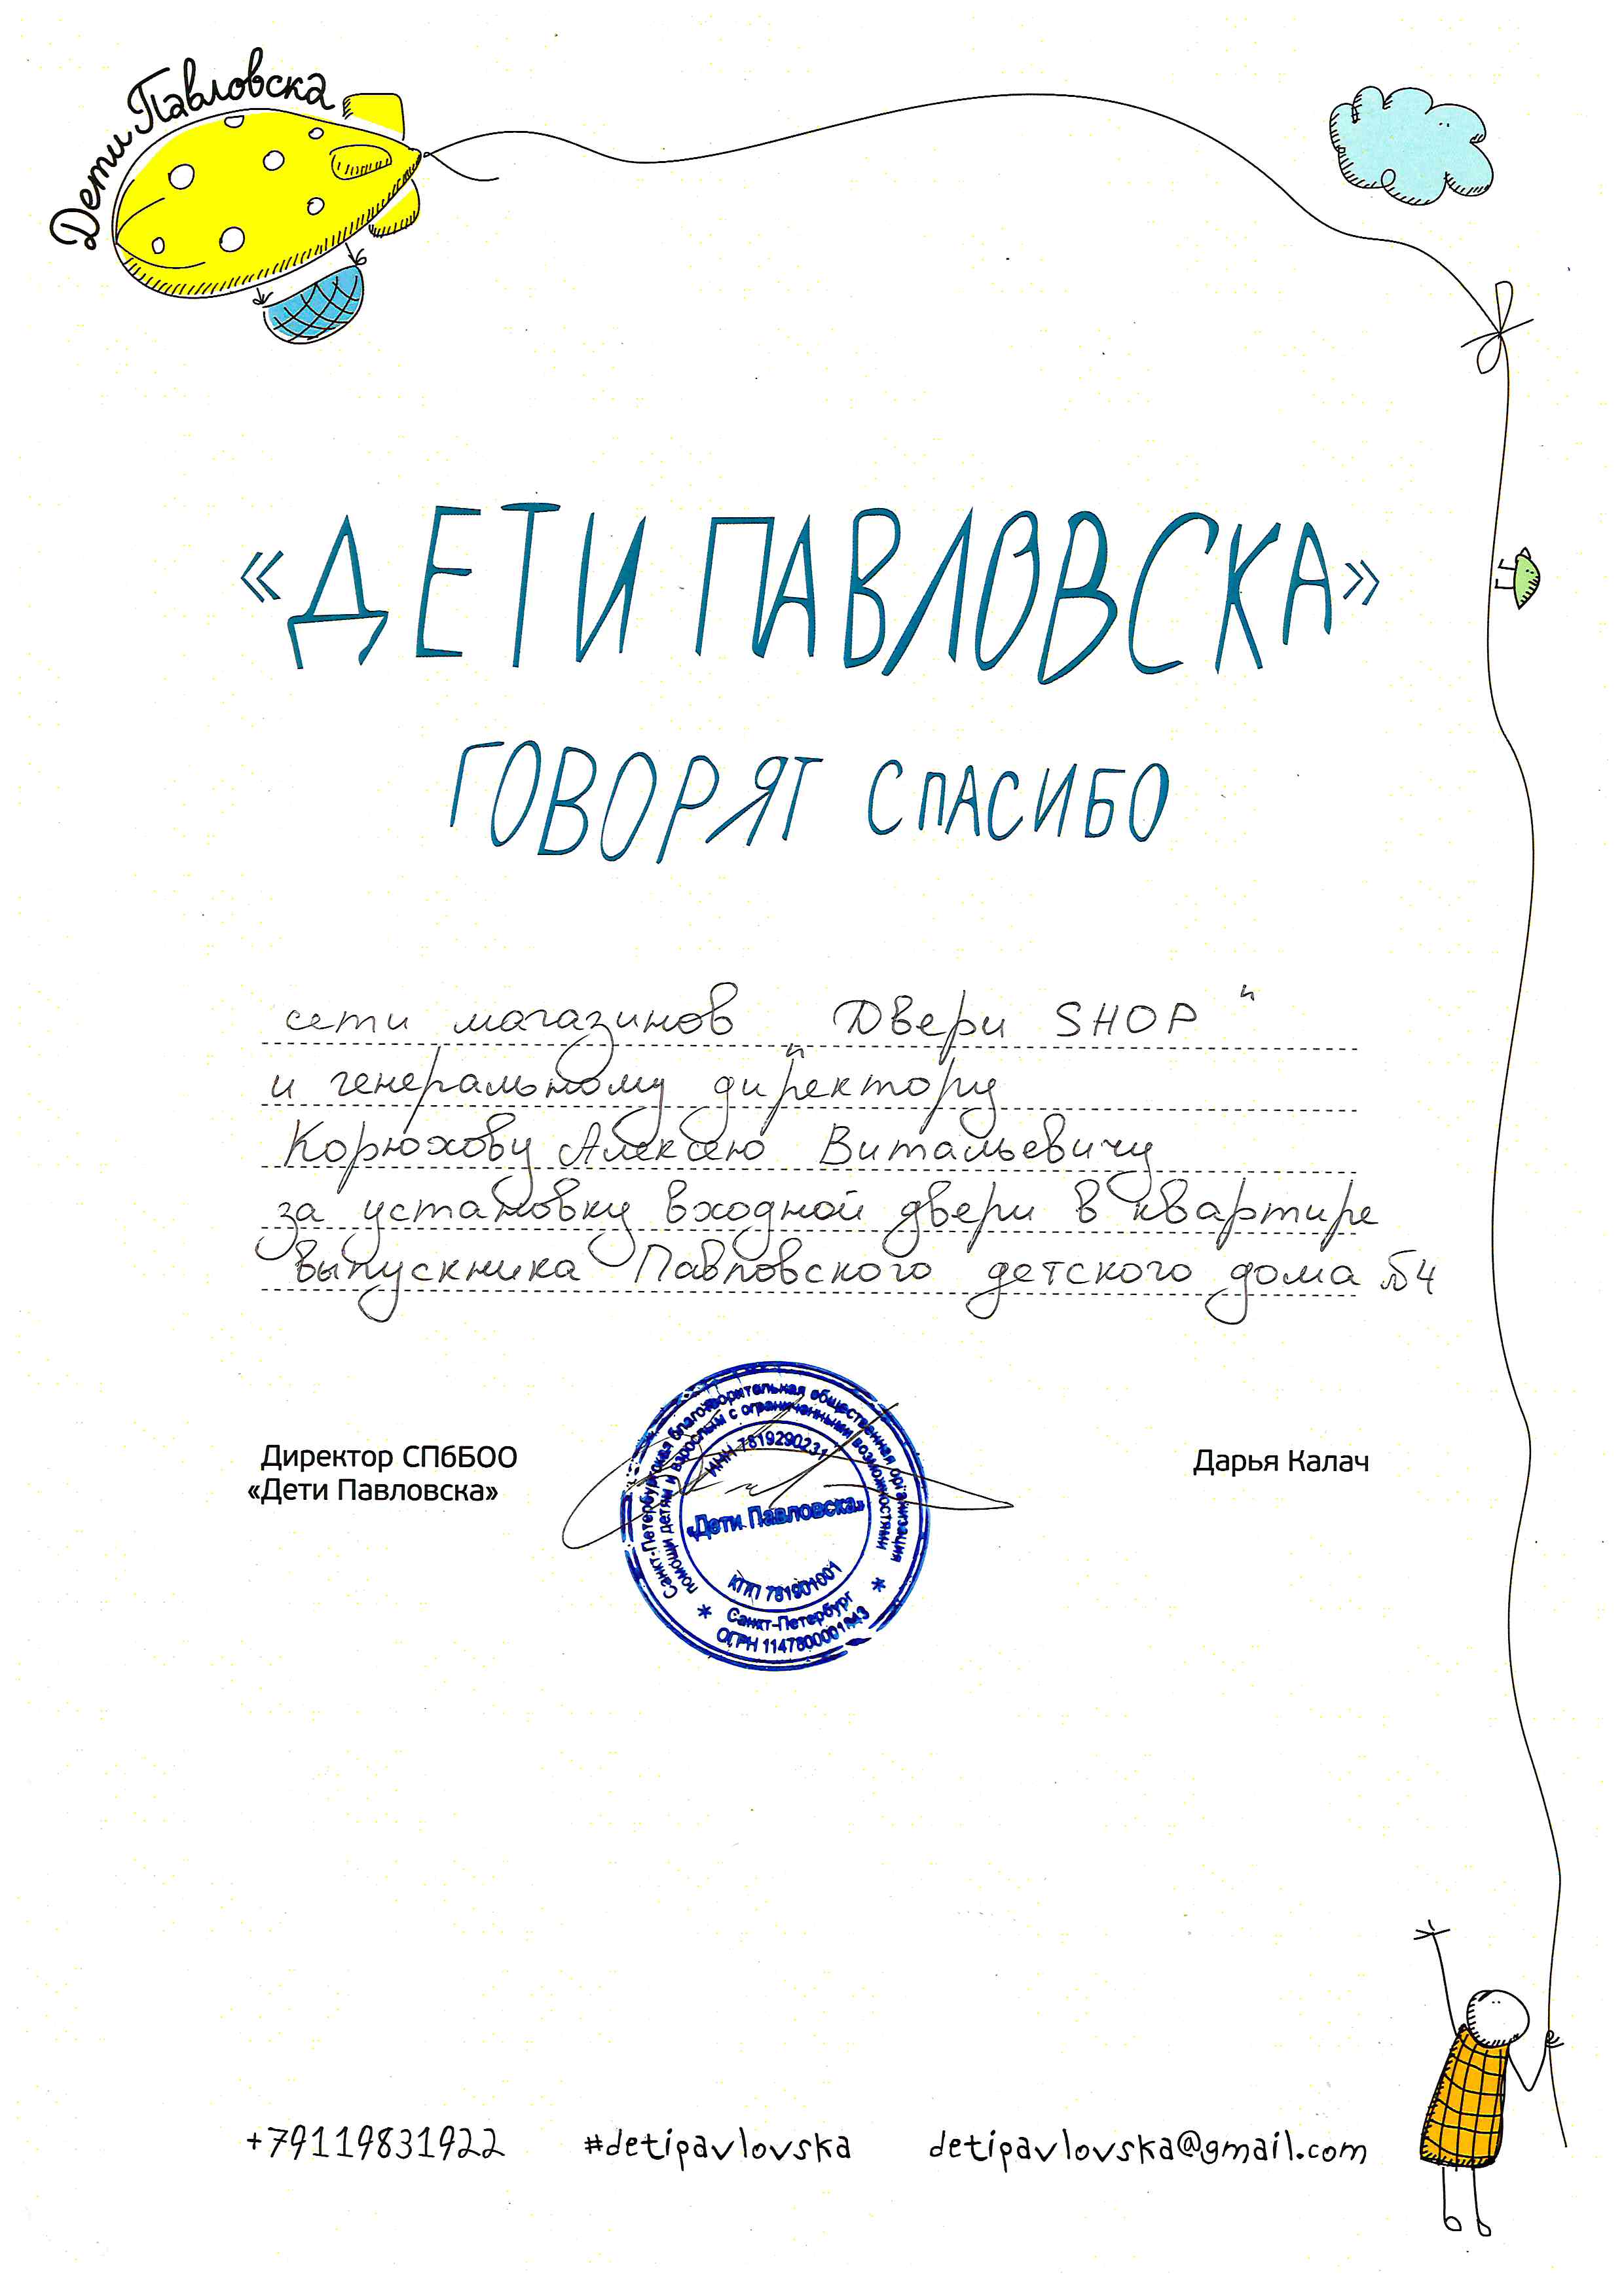 Дети Павловска
«ДЕТИ ПАВЛОВСКА»
ГОВОРЯТ СПАСИБО
сети магазинов "Двери SHOP"
и генеральному директору
Корюхову Алексею Витальевичу
за установку входной двери в квартире
выпускника Павловского детского дома №4
Директор СПбБОО
«Дети Павловска»
Дарья Калач
Санкт-Петербургская благотворительная общественная организация
помощи детям и взрослым с ограниченными возможностями
ИНН 7819290231
«Дети Павловска»
КПП 781901001
* Санкт-Петербург *
ОГРН
+79119831922 #detipavlovska detipavlovska@gmail.com